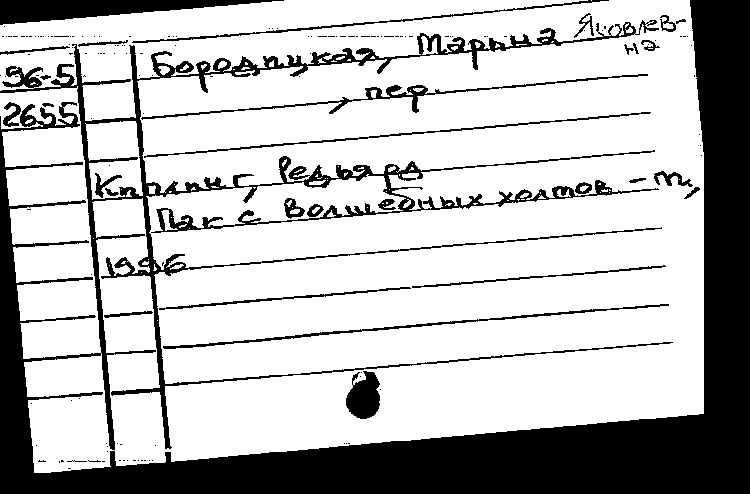 96-5
2655
Бородицкая, Марина Яковлев-
на
, пер.
Киплинг, Редьярд
Пак с волшебных холмов - М.,
1996